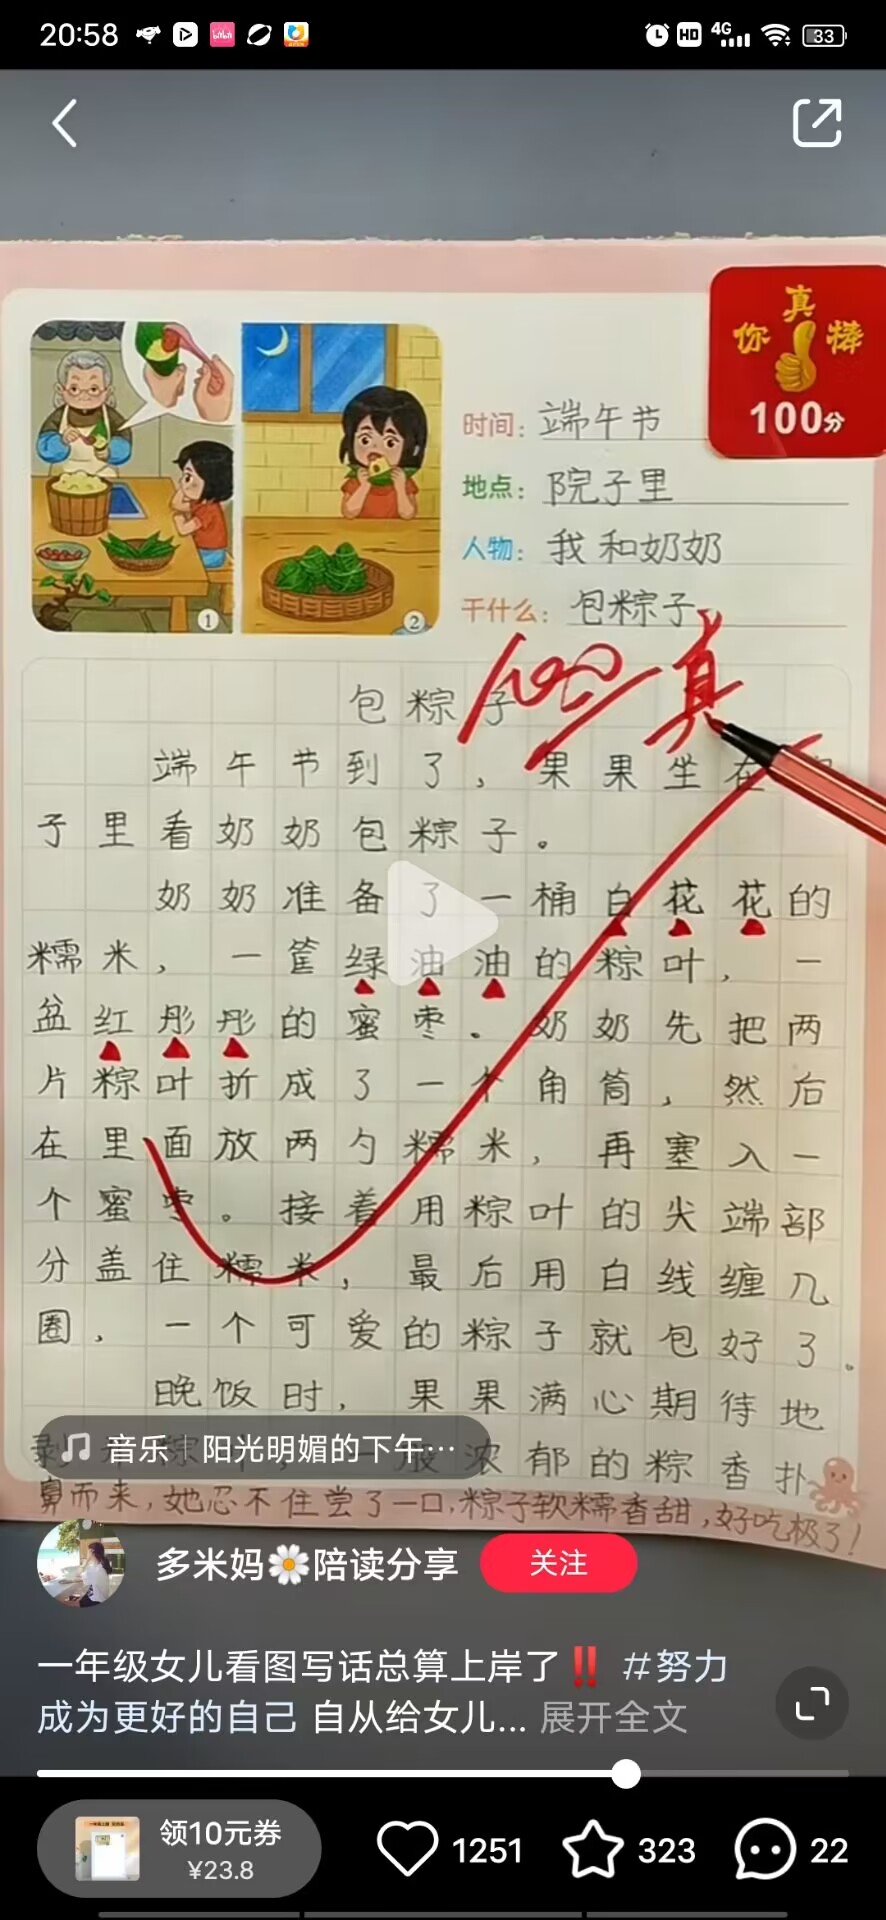 20:58
HD 4G 33
真
你 棒
100分
时间：端午节
地点：院子里
人物：我和奶奶
干什么：包粽子
1
2
100 真
包粽子
端午节到了，果果坐在
子里看奶奶包粽子。
奶奶准备了一桶白花花的
糯米，一筐绿油油的粽叶，一
盆红彤彤的蜜枣。奶奶先把两
片粽叶折成了一个角筒，然后
在里面放两勺糯米，再塞入一
个蜜枣。接着用粽叶的尖端部
分盖住糯米，最后用白线缠几
圈，一个可爱的粽子就包好了。
晚饭时，果果满心期待地
浓郁的粽香扑
鼻而来，她忍不住尝了一口，粽子软糯香甜，好吃极了！
音乐｜阳光明媚的下午…
多米妈🌼陪读分享
关注
一年级女儿看图写话总算上岸了‼️ #努力
成为更好的自己 自从给女儿... 展开全文
领10元券
¥23.8
1251
323
22